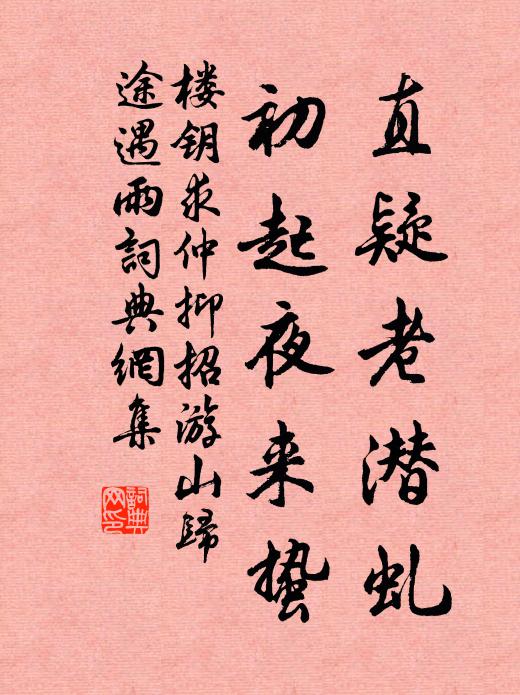 直疑老潜虬
初起夜来蛰
楼钥求仲抑招游山歸
途遇雨詞典網集
詞典网印